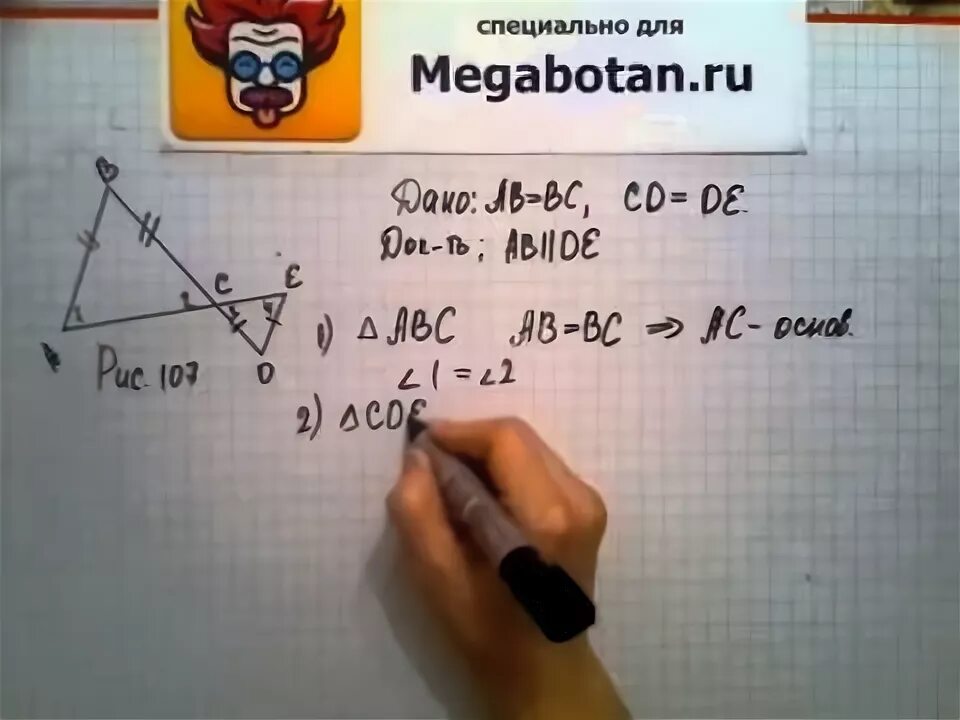 специально для
Megabotan.ru
Дано: AB=BC, CD=DE.
Док-ть: AB||DE
B
C
E
A
D
1
2
3
4
Рис. 107
1) △ABC AB=BC ⇒ AC - основ.
∠1=∠2
2) △CDE